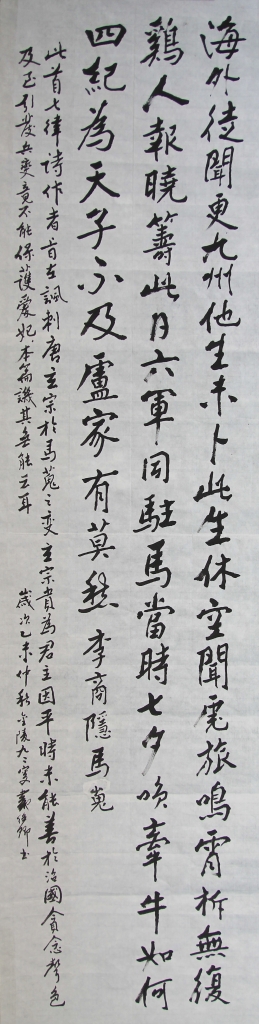 海外徒聞更九州他生未卜此生休空聞虎旅鳴宵柝無復
鷄人報曉籌此日六軍同駐馬當時七夕唤牽牛如何
四紀為天子不及盧家有莫愁 李商隱馬嵬
此首七律詩作者旨在諷刺唐玄宗於馬嵬之變玄宗貴為君主因平時未能善於治國貪念聲色
及至引發兵變竟不能保護愛妃本篇譏其無能云耳 歲次乙未仲秋金陵九二叟戴